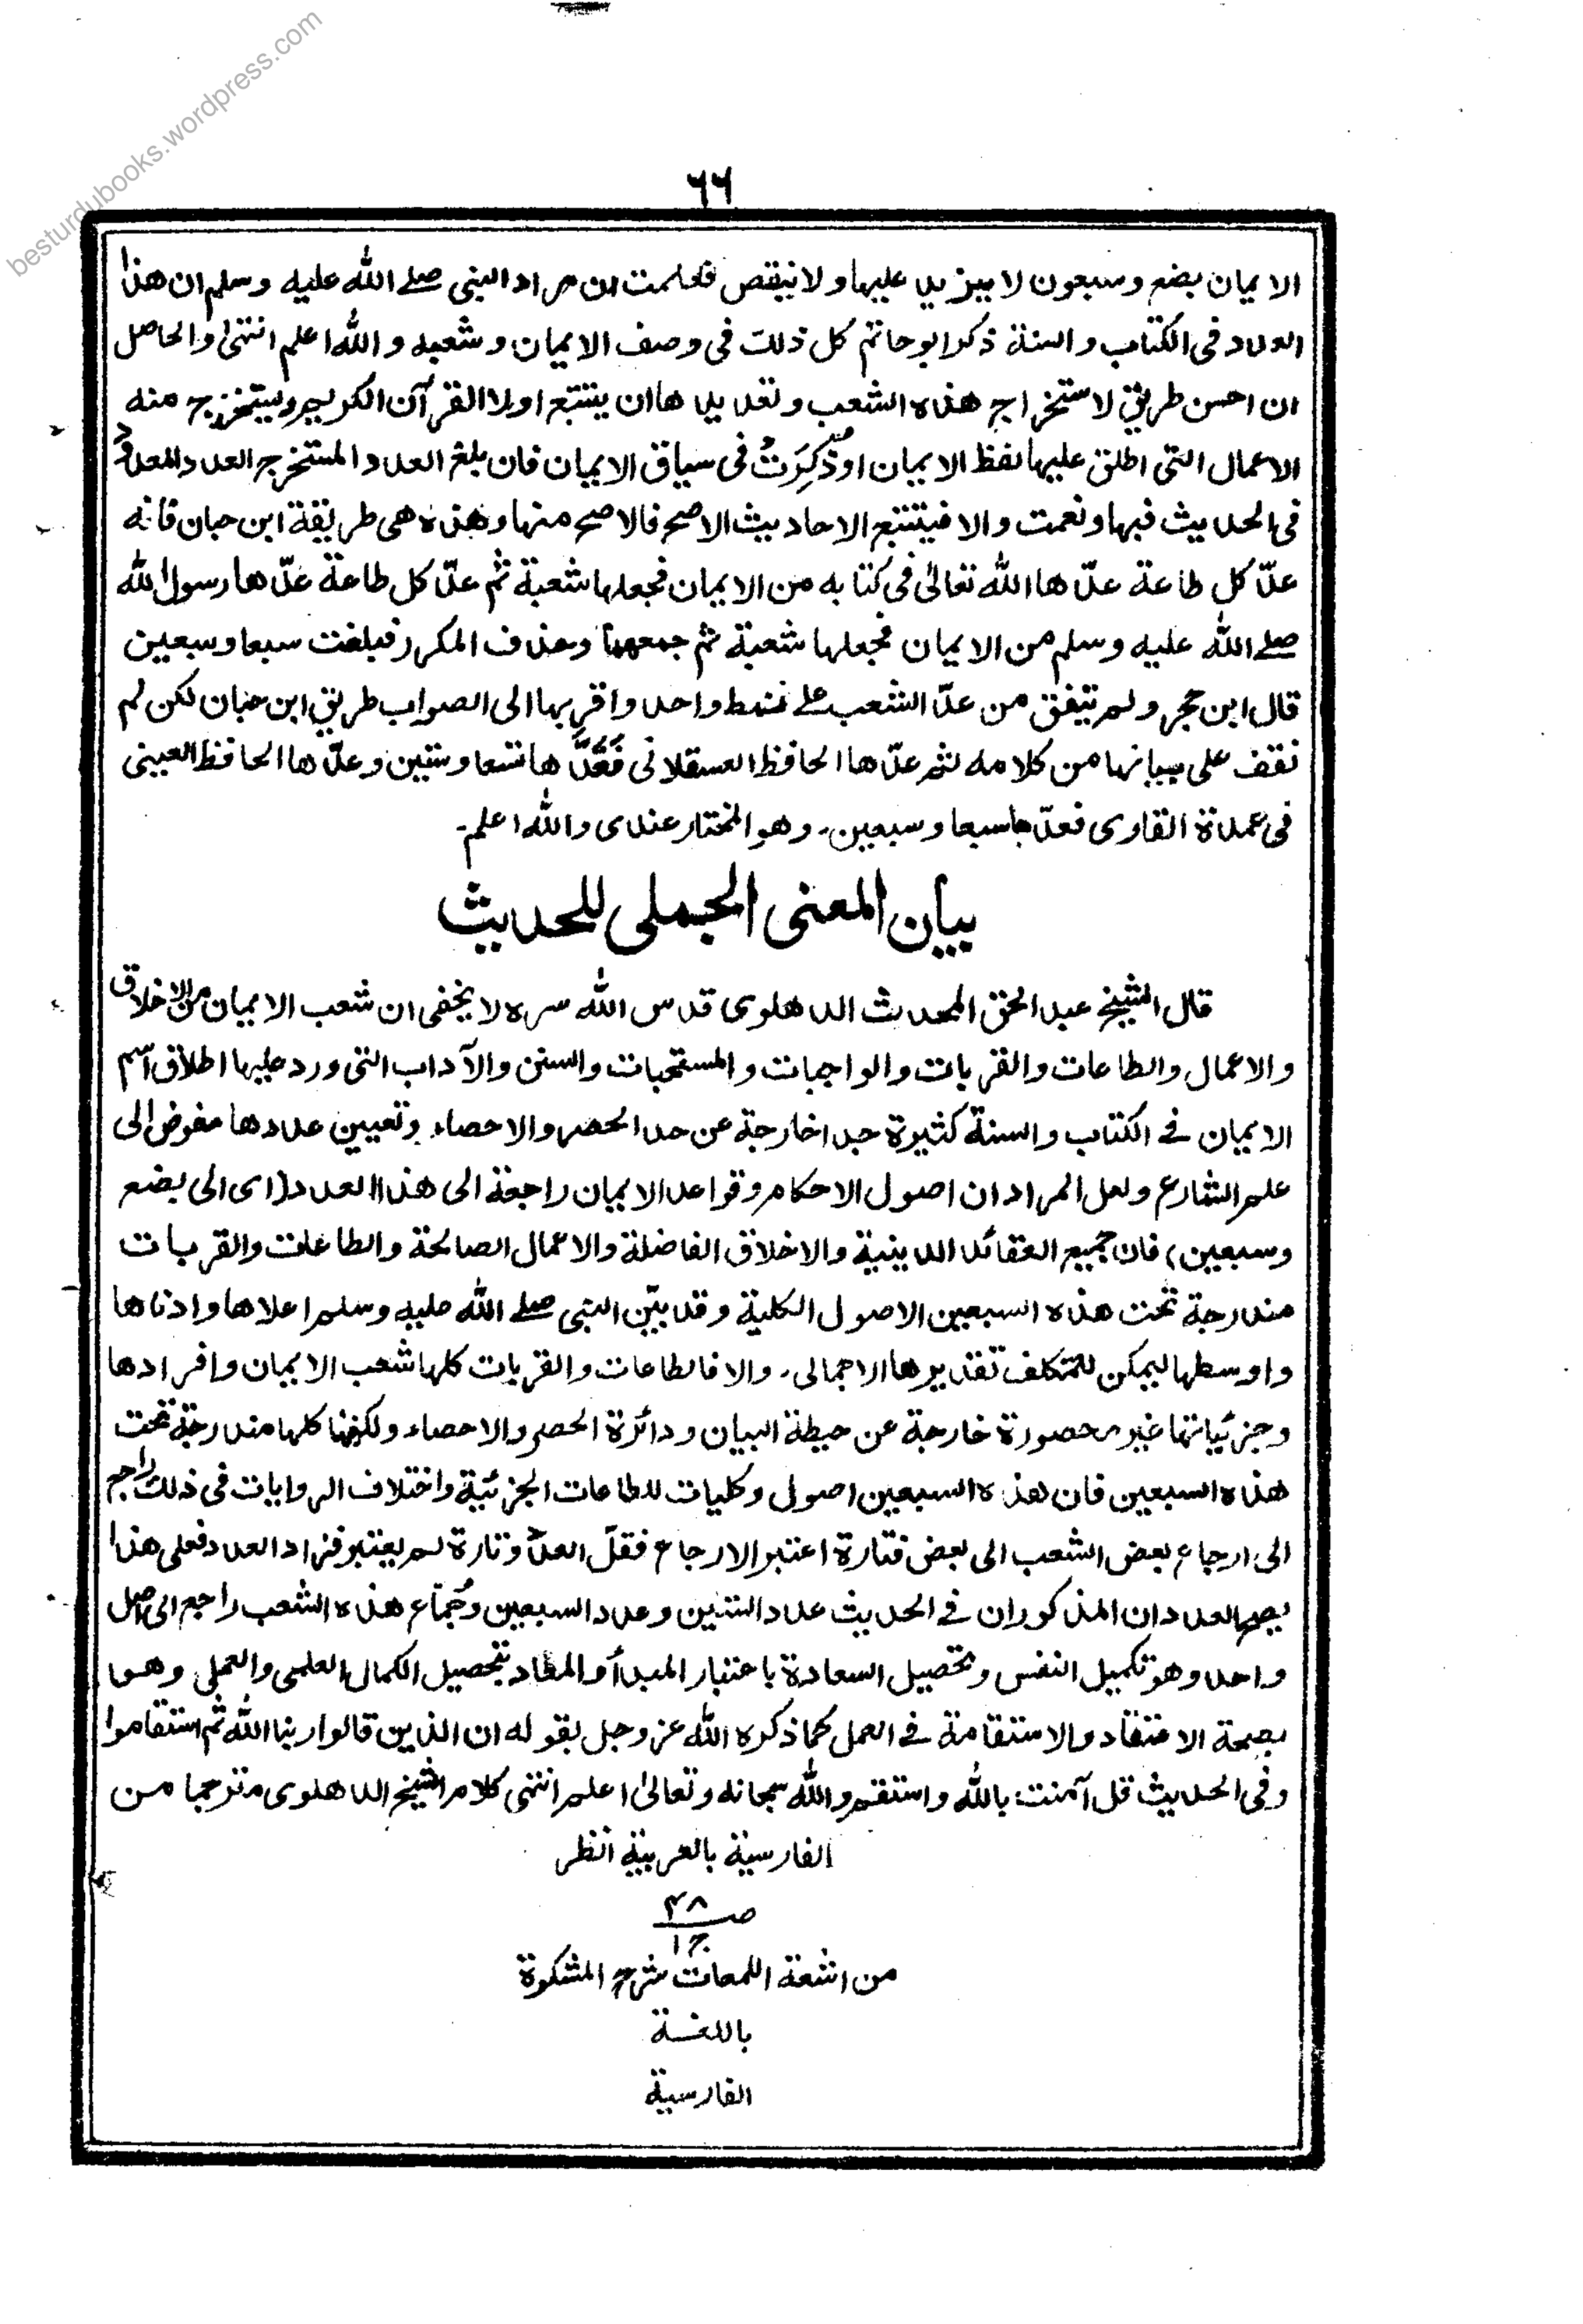 besturdubooks.wordpress.com
٦٦
الايمان بضع وسبعون لا يزيد عليها ولا ينقص فعلمت ان مراد النبى صلے الله عليه وسلم ان هذا
العدد فى الكتاب والسنة ذكر ابو حاتم كل ذلك فى وصف الايمان وشعبه والله اعلم انتهىٰ والحاصل
ان احسن طريق لاستخراج هذه الشعب وتعديدها ان يتتبع اولا القرآن الكريم ويستخرج منه
الاعمال التى اطلق عليها لفظ الايمان او ذُكِرَتْ فى سياق الايمان فان بلغ العدد المستخرج العدد المعدود
فى الحديث فبها ونعمت والا فيتتبع الاحاديث الاصح فالاصح منها وهذه هى طريقة ابن حبان فانه
عدّ كل طاعة عدّها الله تعالىٰ فى كتابه من الايمان فجعلها شعبة ثم عدّ كل طاعة عدّها رسول الله
صلے الله عليه وسلم من الايمان فجعلها شعبة ثم جمعهما وحذف المكرر فبلغت سبعا وسبعين
قال ابن حجر ولم يتفق من عدّ الشعب علے نمط واحد واقربها الى الصواب طريق ابن حبان لكن لم
نقف على بيانها من كلامه ثم عدّها الحافظ العسقلانى فَعَدَّها تسعا وستين وعدّها الحافظ العينى
فى عمدة القارى فعدّها سبعا وسبعين۔ وهو المختار عندى والله اعلم۔
بيان المعنى الجملى للحديث
قال الشيخ عبد الحق المحدث الدهلوى قدس الله سره لا يخفى ان شعب الايمان من الاخلاق
والاعمال والطاعات والقربات والواجبات والمستحبات والسنن والآداب التى ورد عليها اطلاق اسم
الايمان فے الكتاب والسنة كثيرة جدا خارجة عن حد الحصر والاحصاء وتعيين عددها مفوض الى
علم الشارع ولعل المراد ان اصول الاحكام وقواعد الايمان راجعة الى هذا العدد (اى الى بضع
وسبعين) فان جميع العقائد الدينية والاخلاق الفاضلة والاعمال الصالحة والطاعات والقربات
مندرجة تحت هذه السبعين الاصول الكلية وقد بيّن النبى صلے الله عليه وسلم اعلاها وادناها
واوسطها ليمكن للمتكلف تقديرها الاجمالى۔ والا فالطاعات والقربات كلها شعب الايمان وافرادها
وجزئياتها غير محصورة خارجة عن حيطة البيان ودائرة الحصر والاحصاء ولكنها كلها مندرجة تحت
هذه السبعين فان هذه السبعين اصول وكليات للطاعات الجزئية واختلاف الروايات فى ذلك راجع
الى ارجاع بعض الشعب الى بعض فتارة اعتبر الارجاع فقلّ العدّ وتارة لم يعتبر فزاد العدد فعلى هذا
يصح العددان المذكوران فے الحديث عدد الستين وعدد السبعين وجُمّاع هذه الشعب راجع الى اصل
واحد وهو تكميل النفس وتحصيل السعادة باعتبار المبدأ والمعاد بتحصيل الكمال العلمى والعملى وهو
بصحة الاعتقاد والاستقامة فے العمل كما ذكره الله عز وجل بقوله ان الذين قالوا ربنا الله ثم استقاموا
وفى الحديث قل آمنت بالله واستقم والله سبحانه وتعالىٰ اعلم انتهى كلام الشيخ الدهلوى مترجما من
الفارسية بالعربية انظر
صـ ٤٨
ج ١
من اشعة اللمعات شرح المشكوة
باللغــة
الفارسية